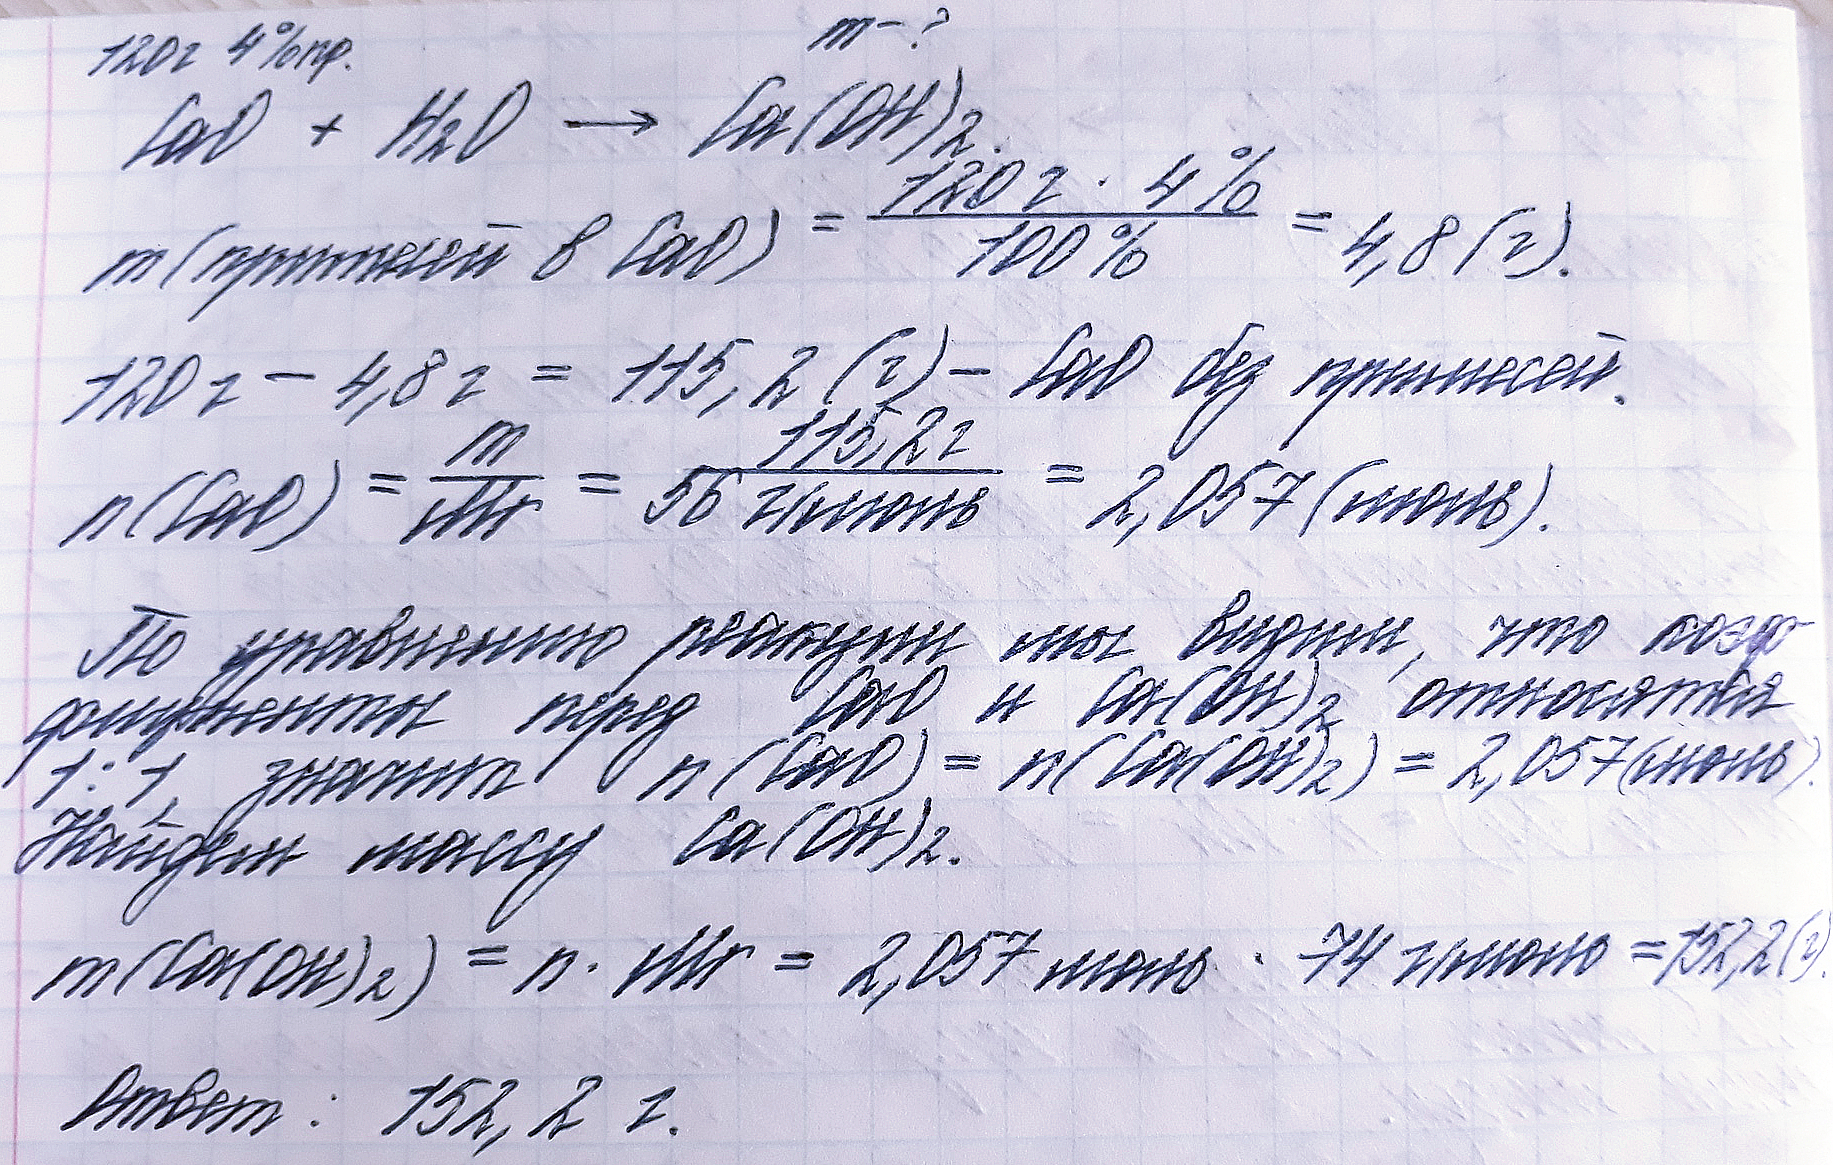 120г 4%пр. m-?
CaO + H₂O → Ca(OH)₂.
m(примесей в CaO) = 120г · 4% / 100% = 4,8(г).
120г - 4,8г = 115,2(г) - CaO без примесей.
n(CaO) = m / Mr = 115,2г / 56 г/моль = 2,057(моль).
По уравнению реакции мы видим, что коэф
фициенты перед CaO и Ca(OH)₂ относятся
1:1, значит n(CaO) = n(Ca(OH)₂) = 2,057(моль).
Найдем массу Ca(OH)₂.
m(Ca(OH)₂) = n · Mr = 2,057 моль · 74 г/моль = 152,2(г).
Ответ: 152,2 г.